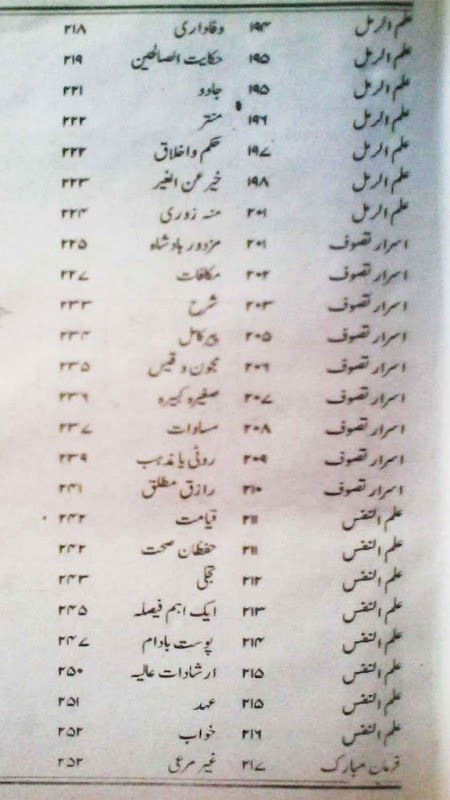 علم الرمل ۱۹۴ وفاداری ۲۱۸
علم الرمل ۱۹۵ حکایت الصالحین ۲۱۹
علم الرمل ۱۹۵ جادو ۲۲۱
علم الرمل ۱۹۶ منتر ۲۲۲
علم الرمل ۱۹۷ حکم و اخلاق ۲۲۲
علم الرمل ۱۹۸ خیر عن الغیر ۲۲۳
علم الرمل ۲۰۱ منہ زوری ۲۲۴
اسرار تصوف ۲۰۱ مزدور بادشاہ ۲۲۵
اسرار تصوف ۲۰۲ مکافات ۲۲۷
اسرار تصوف ۲۰۳ شرح ۲۳۳
اسرار تصوف ۲۰۵ پیر کامل ۲۳۴
اسرار تصوف ۲۰۶ مجنون و قیس ۲۳۵
اسرار تصوف ۲۰۷ صغیرہ کبیرہ ۲۳۶
اسرار تصوف ۲۰۸ مساوات ۲۳۷
اسرار تصوف ۲۰۹ روٹی یا مذہب ۲۳۹
اسرار تصوف ۲۱۰ رازق مطلق ۲۴۱
علم النفس ۲۱۱ قیامت ۲۴۲
علم النفس ۲۱۱ حفظان صحت ۲۴۲
علم النفس ۲۱۲ تجلی ۲۴۳
علم النفس ۲۱۳ ایک اہم فیصلہ ۲۴۵
علم النفس ۲۱۴ پوست بادام ۲۴۷
علم النفس ۲۱۵ ارشادات عالیہ ۲۵۰
علم النفس ۲۱۵ عہد ۲۵۱
علم النفس ۲۱۶ خواب ۲۵۲
فرمان مبارک ۲۱۷ غیر مرعی ۲۵۲